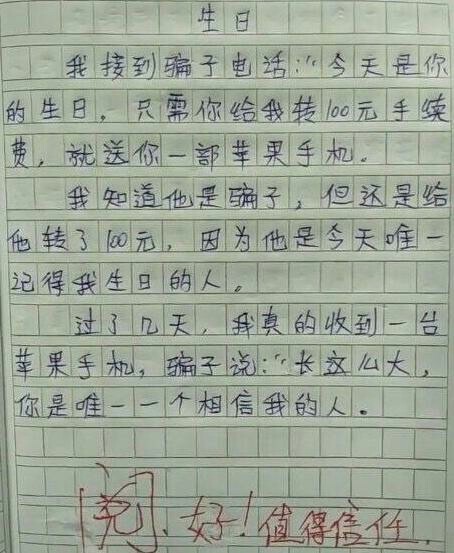 生日
我接到骗子电话：“今天是你
的生日，只需你给我转100元手续
费，就送你一部苹果手机。
我知道他是骗子，但还是给
他转了100元，因为他是今天唯一
记得我生日的人。
过了几天，我真的收到一台
苹果手机，骗子说：“长这么大，
你是唯一一个相信我的人。
好！值得信任.